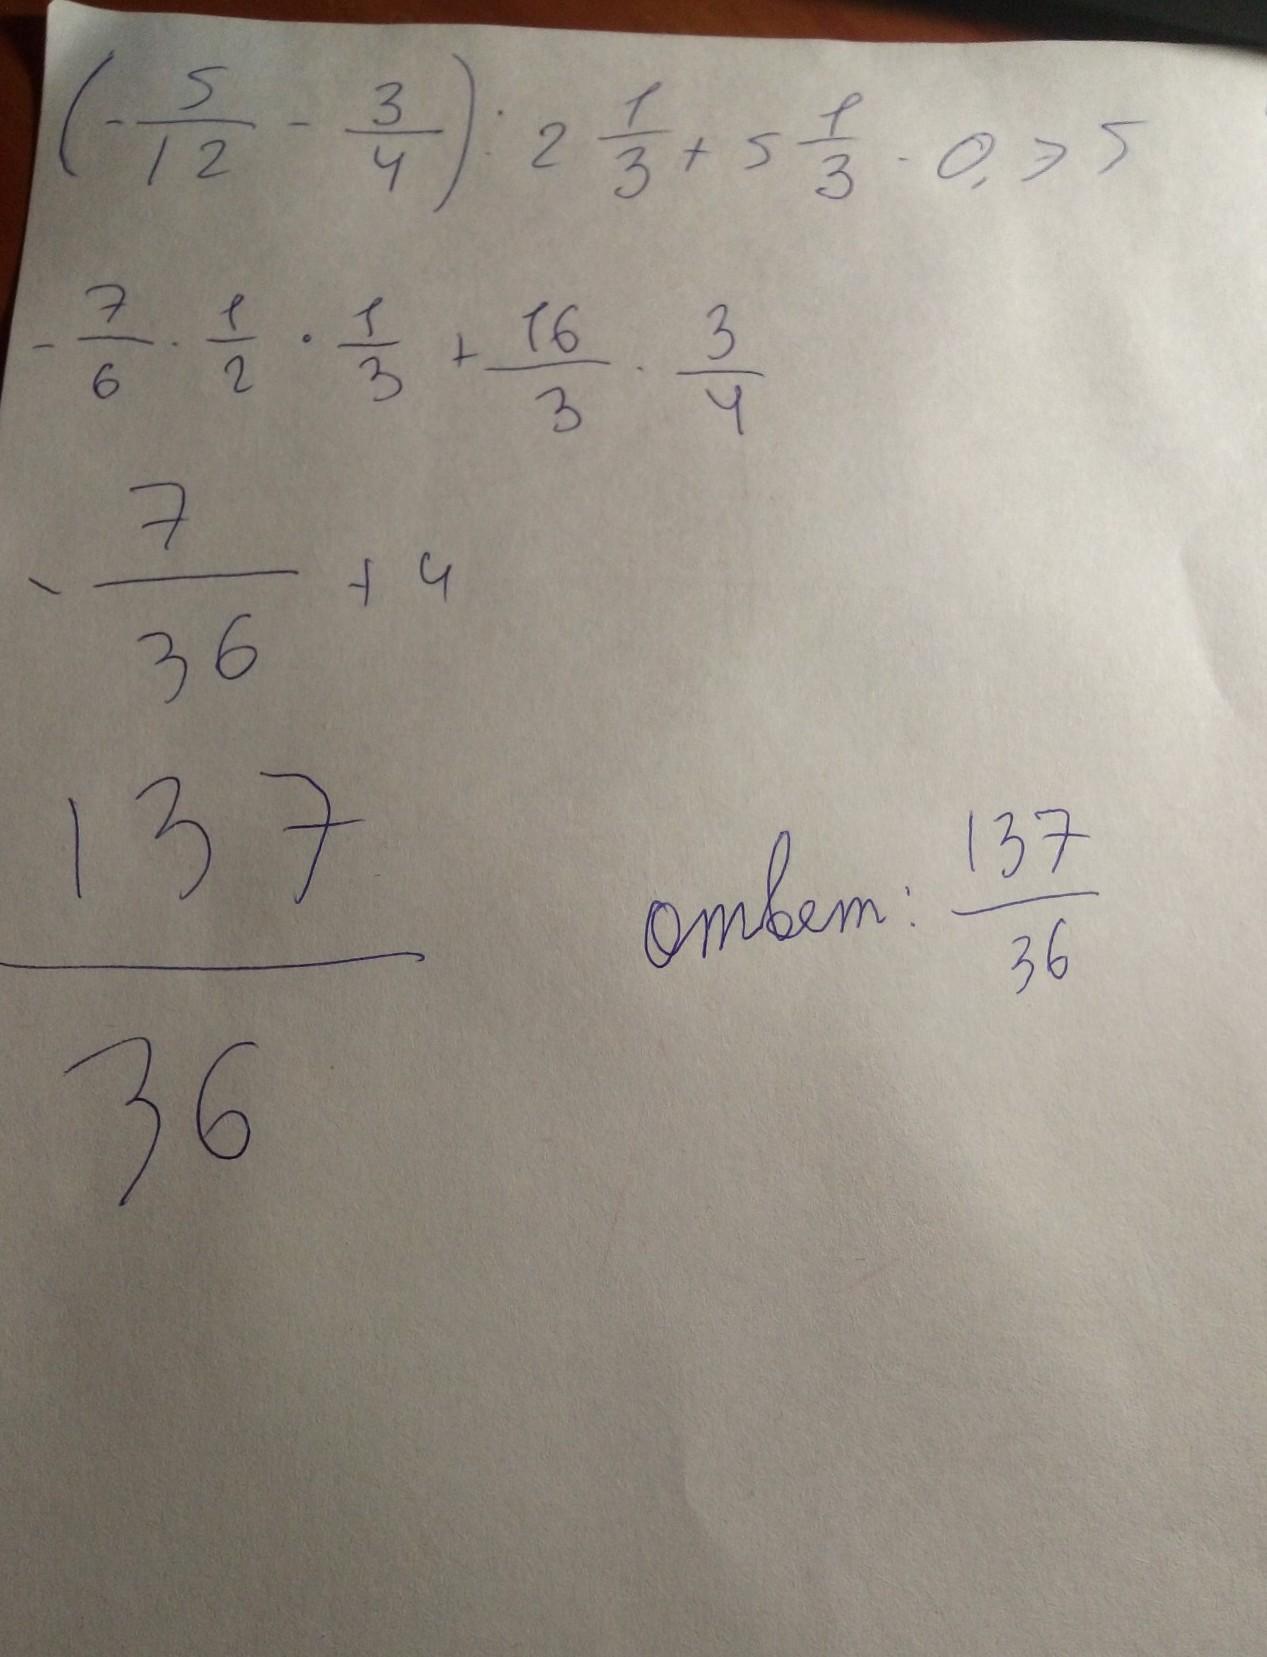 (-5/12 - 3/4) : 2 1/3 + 5 1/3 · 0,75
-7/6 · 1/2 · 1/3 + 16/3 · 3/4
-7/36 + 4
137/36
ответ: 137/36